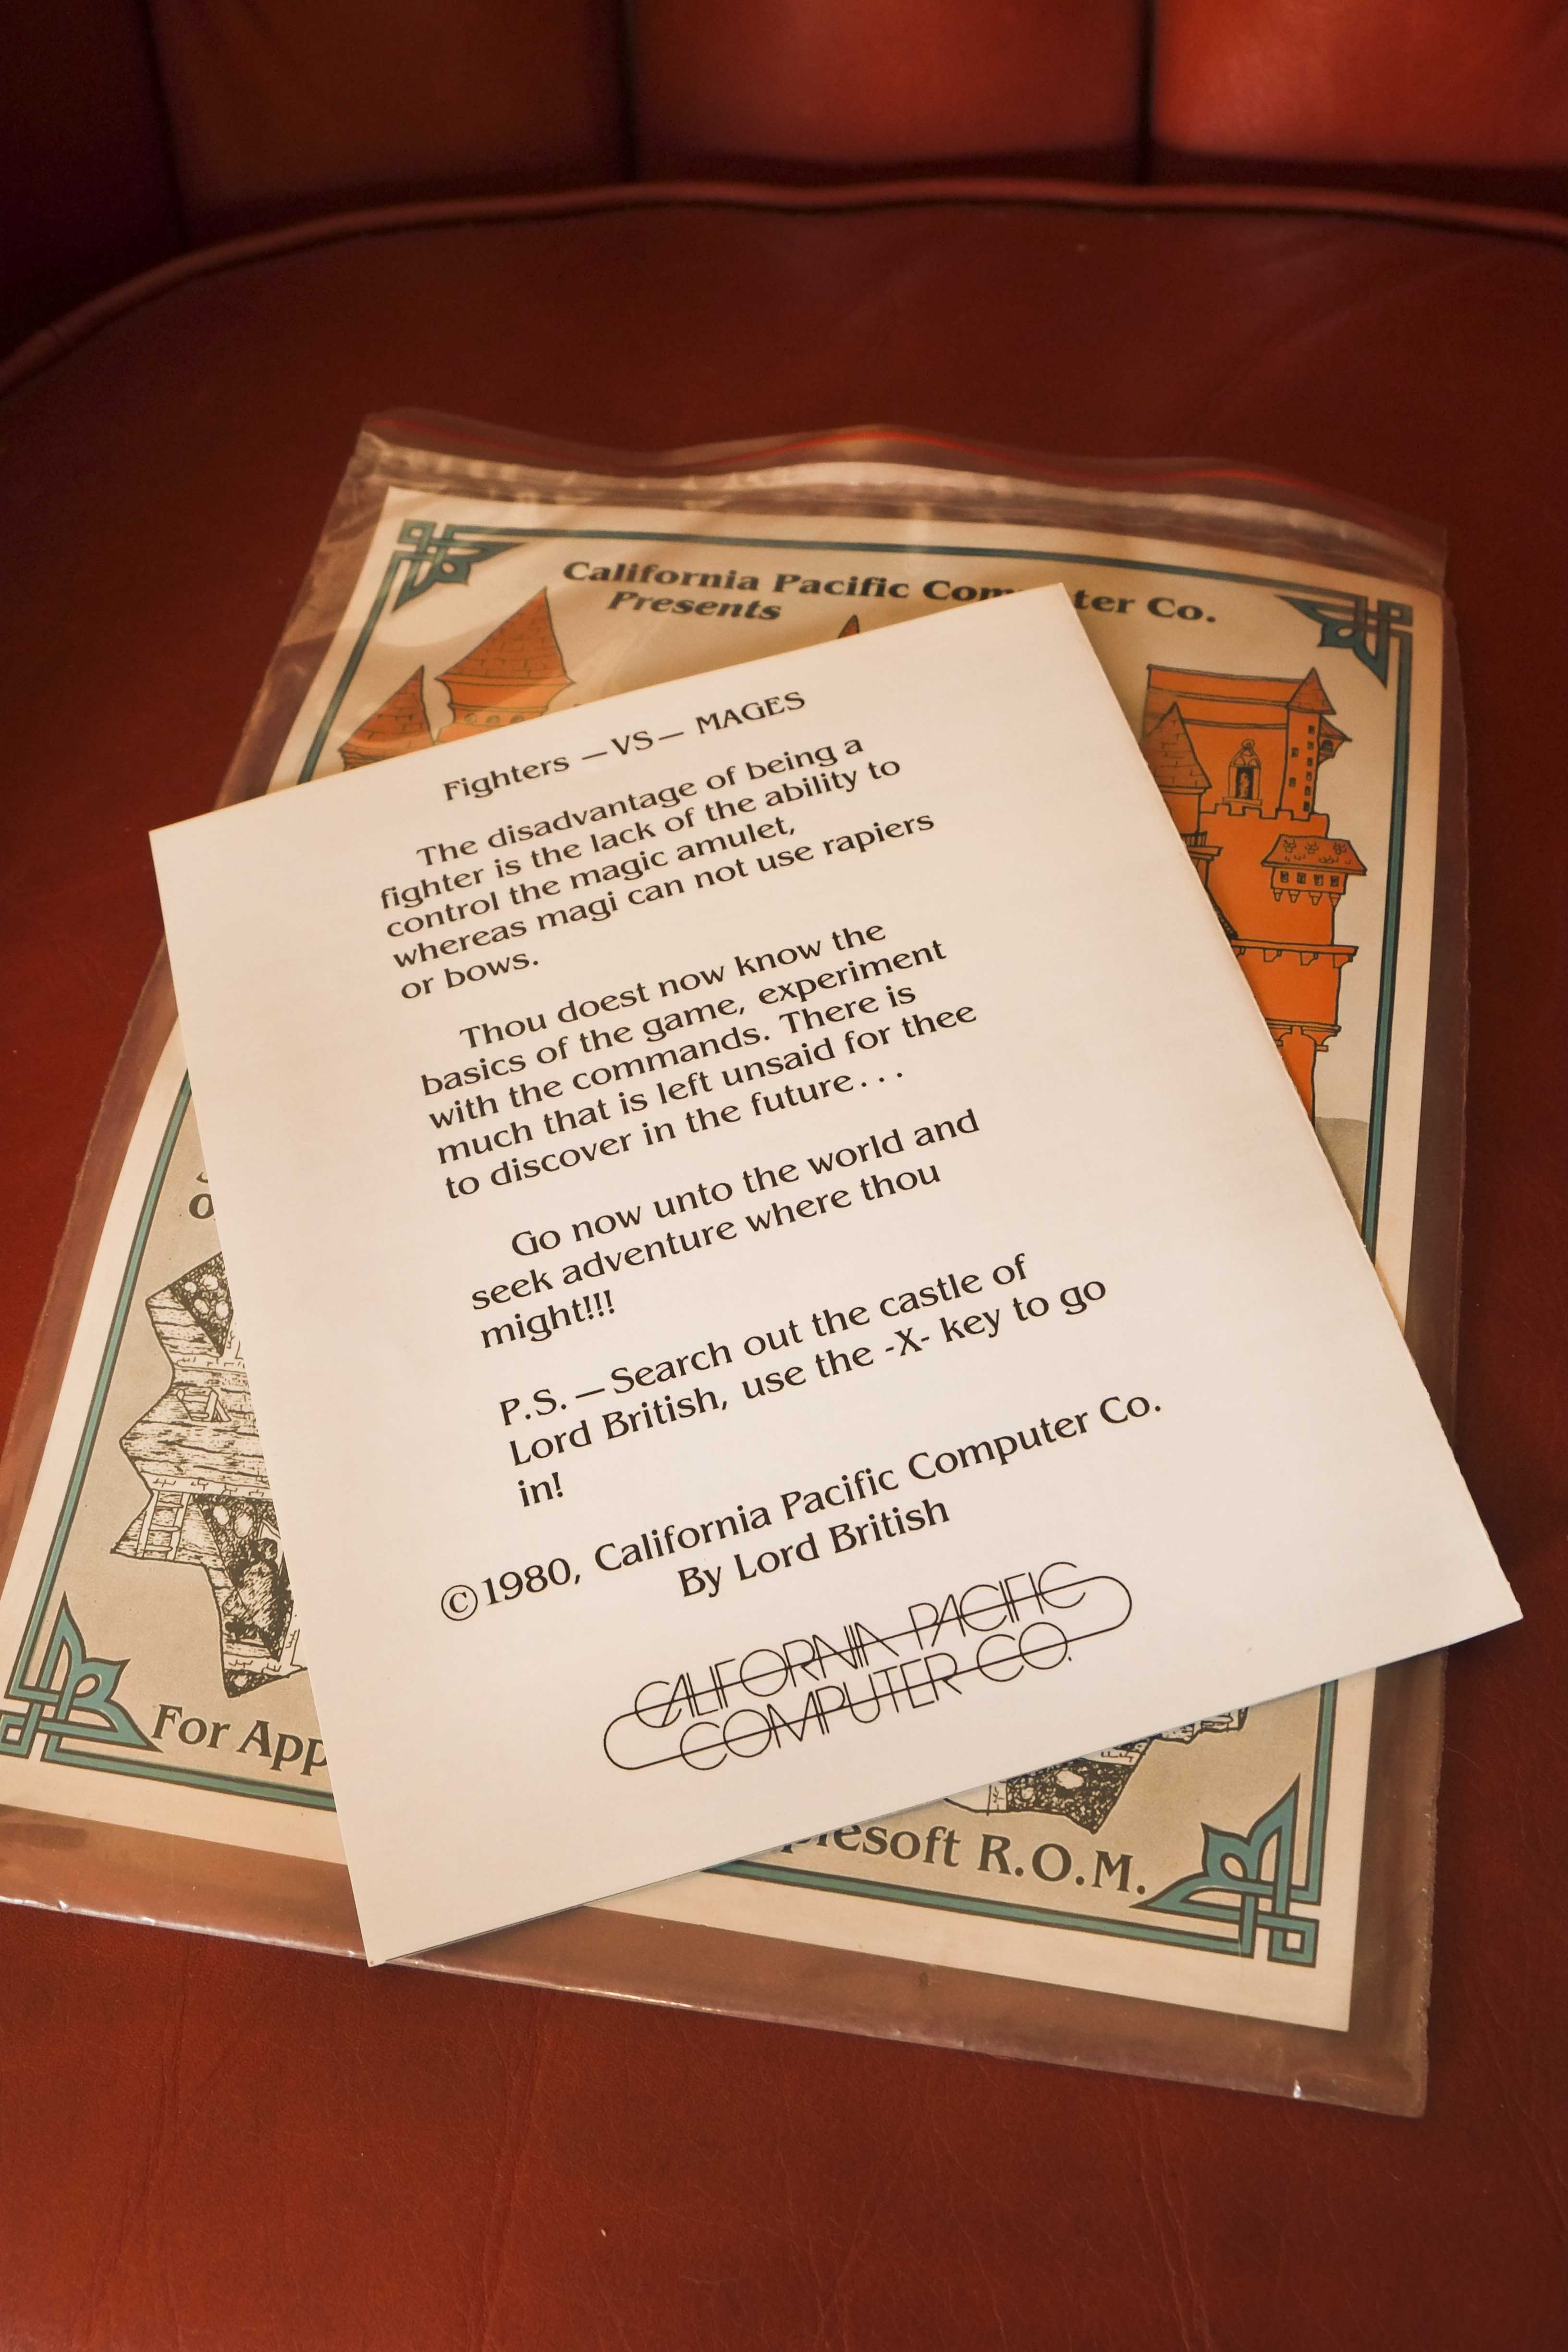 California Pacific Com ter Co.
Presents
Fighters —VS— MAGES
The disadvantage of being a
fighter is the lack of the ability to
control the magic amulet,
whereas magi can not use rapiers
or bows.
Thou doest now know the
basics of the game, experiment
with the commands. There is
much that is left unsaid for thee
to discover in the future...
Go now unto the world and
seek adventure where thou
might!!!
P.S. —Search out the castle of
Lord British, use the -X- key to go
in!
©1980, California Pacific Computer Co.
By Lord British
CALIFORNIA PACIFIC
COMPUTER CO.
For App
plesoft R.O.M.